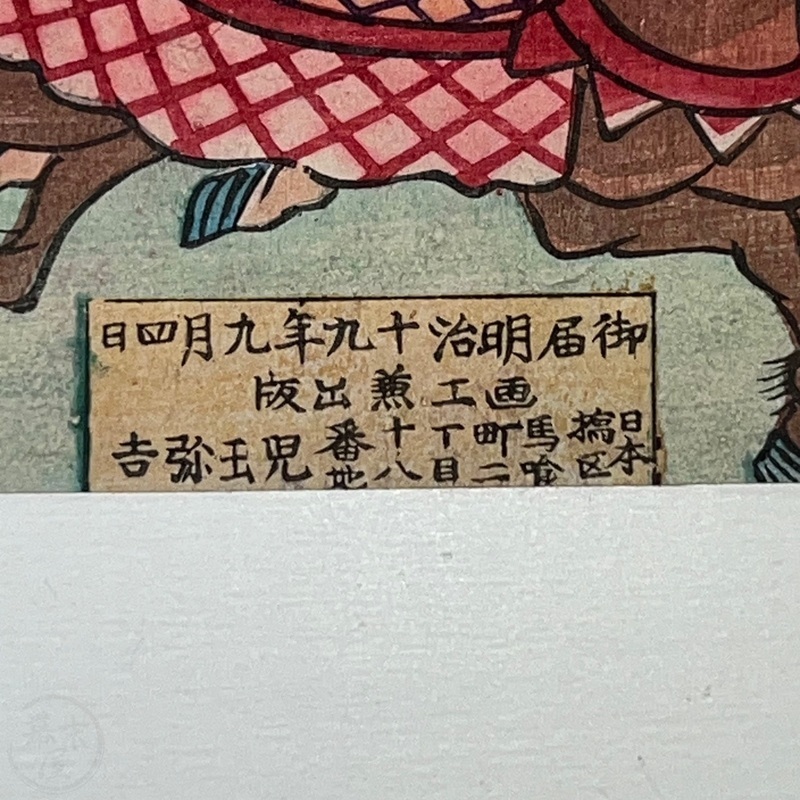 御届明治十九年九月四日
画工兼出版
日本橋区馬喰町二丁目十八番地児玉弥吉